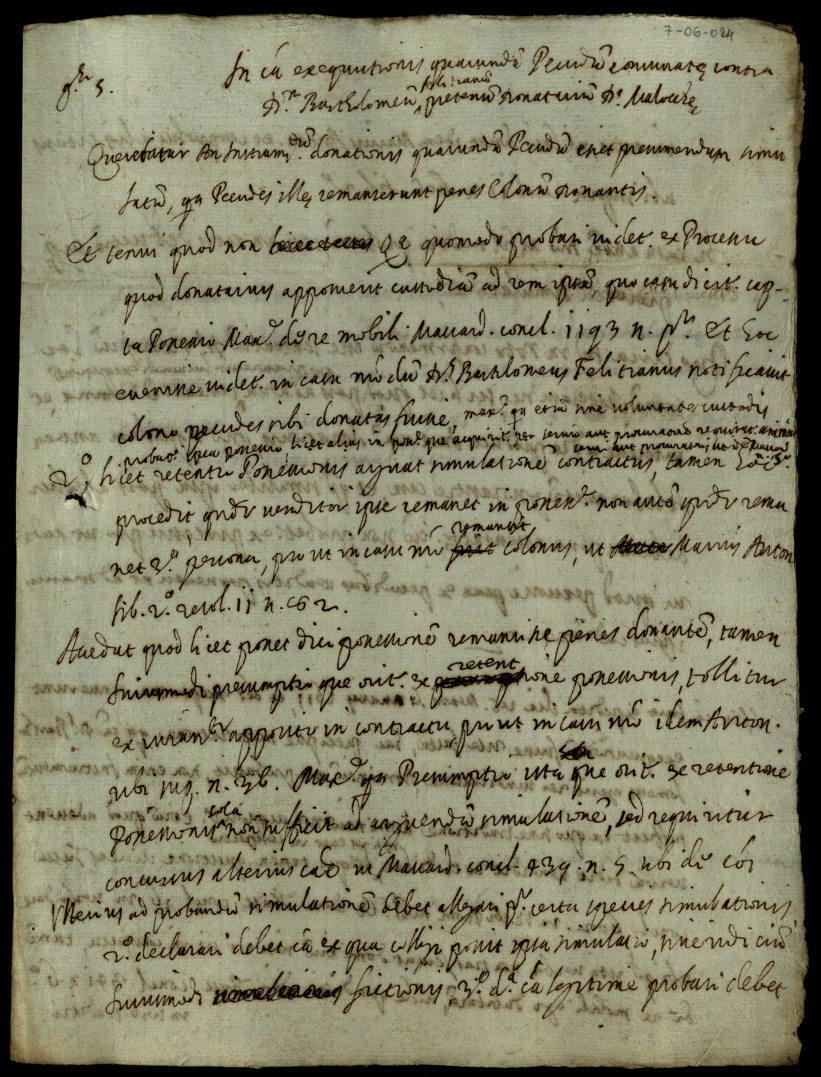 7-06-024
In cā exequutionis quarundū Pecudū comunatę contra
D.m Bartholomeū Felitianū pretensū donatariū D.ę
Querebatur An Instrum.tū donationis quarundū Pecudū esset presumendum simu
latū, quia Pecudes illę remanserunt penes Colonū donantis.
Et tenui quod non quomodo probari videt. ex Processu
quod donatarius apposuerit custodiā ad rem ipsā, quo casu dicit. cap-
ta Possessio Max.e de re mobili. Mascard. concl. 1193 n. p.o Et hoc
evenisse videt. in casu nřo dū D. Bartholomeus Felitianus notificavit
colono pecudes sibi donatas fuisse, max.e quia etiā sine voluntate custodis
2.o, licet retentio Possessionis arguat simulationē contractus, tamen hoc
procedit, quādo venditor ipse remanet in possess.e non autē quādo rema
net 3.a persona, prout in casu nřo remansit colonus, ut Marius Anton.
lib. 2.o resol. 11 n. 62.
Accedat quod licet posset dici possessionē remansisse penes donantē, tamen
huiusmodi presumptio que orit. ex retentione possessionis, tollitur
ex iuram.to apposito in contractu, prout in casu nřo idem Anton.
ubi sup. n. 36. Max.e quia Presumptio ista que orit. ex retentione
Possessionis sola non sufficit ad arguendū simulationē, sed requiritur
concursus alterius ut Mascard. concl. 439. n. 5. ubi
Ulterius ad probandū simulationē debet allegari p.o certa species simulationis,
2.o declarari debet cā ex qua colligi possit ipsa simulatio, sive
huiusmodi fictionis, 3.o d.a cā legitime probari debet